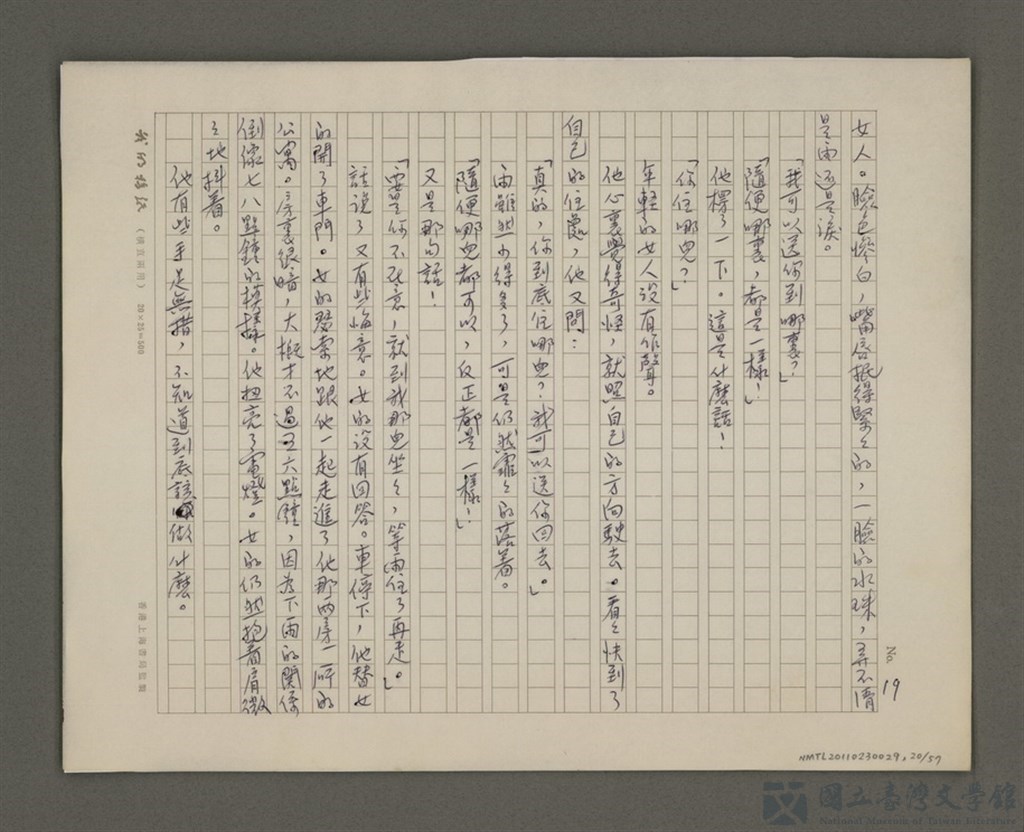 No. 19
女人。臉色慘白，嘴唇抿得緊々的，一臉的水珠，弄不清
是雨還是淚。
「我可以送你到哪裏？」
「隨便哪裏，都是一樣！」
他楞了一下。這是什麼話！
「你住哪兒？」
年輕的女人沒有作聲。
他心裏覺得奇怪，就照自己的方向駛去。看々快到了
自己的住處，他又問：
「真的，你到底住哪兒？我可以送你回去。」
雨雖然小得多了，可是仍然霏々的落着。
「隨便哪兒都可以，反正都是一樣！」
又是那句話！
「要是你不在意，就到我那兒坐々，等雨住了再走。」
話說了又有些悔意。女的沒有回答。車停下，他替女
的開了車門。女的默默地跟他一起走進了他那兩房一所的
公寓。房裏很暗，大概才不過五六點鐘，因為下雨的關係
倒像七八點鐘的模樣。他扭亮了電燈。女的仍然抱着肩微
々地抖着。
他有些手足無措，不知道到底該做什麼。
我的稿紙 （橫直兩用） 20×25=500
香港上海書局監製
NMTL20110230029, 20/57
國立臺灣文學館
National Museum of Taiwan Literature